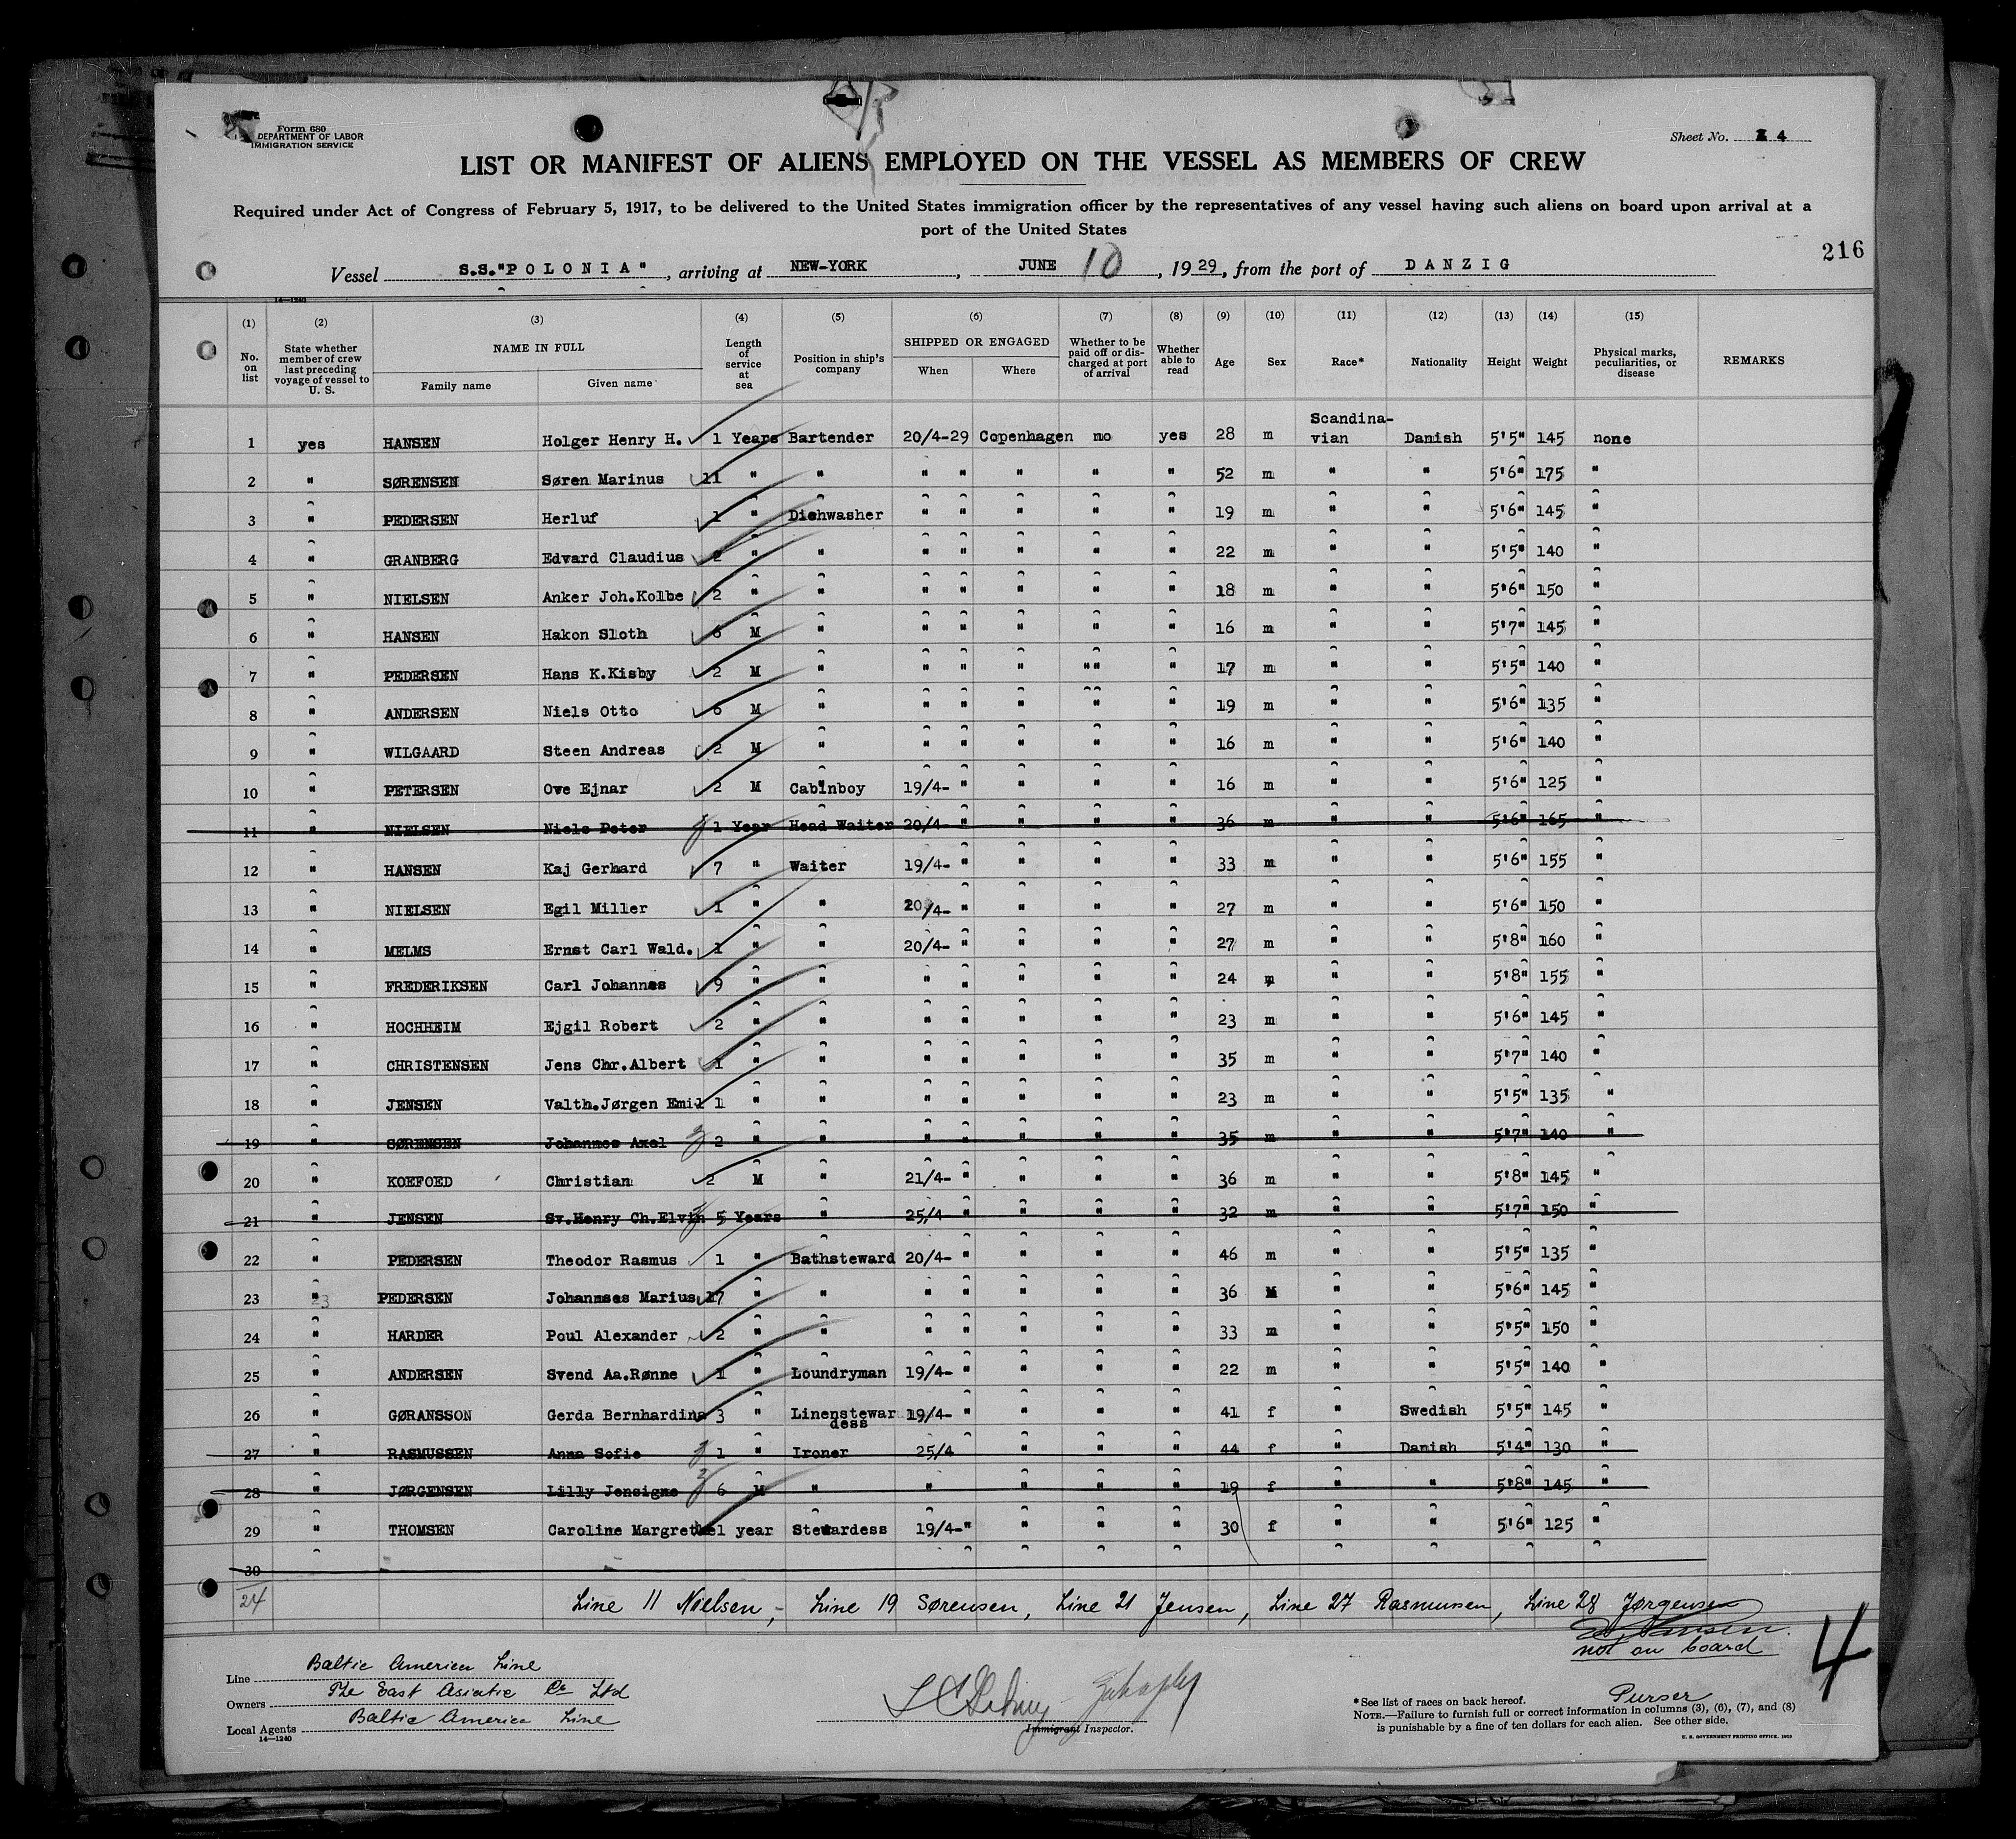 Form 680
DEPARTMENT OF LABOR
IMMIGRATION SERVICE
Sheet No. 4
LIST OR MANIFEST OF ALIENS EMPLOYED ON THE VESSEL AS MEMBERS OF CREW
Required under Act of Congress of February 5, 1917, to be delivered to the United States immigration officer by the representatives of any vessel having such aliens on board upon arrival at a
port of the United States
216
Vessel S.S. "POLONIA", arriving at NEW-YORK, JUNE 10, 1929, from the port of DANZIG
14—1240
(1) (2) (3) (4) (5) (6) (7) (8) (9) (10) (11) (12) (13) (14) (15)
No. on list | State whether member of crew last preceding voyage of vessel to U. S. | NAME IN FULL Family name Given name | Length of service at sea | Position in ship's company | SHIPPED OR ENGAGED When Where | Whether to be paid off or discharged at port of arrival | Whether able to read | Age | Sex | Race* | Nationality | Height | Weight | Physical marks, peculiarities, or disease | REMARKS
1 yes HANSEN Holger Henry H. 1 Years Bartender 20/4-29 Copenhagen no yes 28 m Scandina-vian Danish 5'5" 145 none
2 " SØRENSEN Søren Marinus 11 " " " " " " " 52 m " " 5'6" 175 "
3 " PEDERSEN Herluf 1 " Dishwasher " " " " " 19 m " " 5'6" 145 "
4 " GRANBERG Edvard Claudius 2 " " " " " " " 22 m " " 5'5" 140 "
5 " NIELSEN Anker Joh.Kolbe 2 " " " " " " " 18 m " " 5'6" 150 "
6 " HANSEN Hakon Sloth 6 M " " " " " " 16 m " " 5'7" 145 "
7 " PEDERSEN Hans K.Kisby 2 M " " " " "" " 17 m " " 5'5" 140 "
8 " ANDERSEN Niels Otto 6 M " " " " " " 19 m " " 5'6" 135 "
9 " WILGAARD Steen Andreas 2 M " " " " " " 16 m " " 5'6" 140 "
10 " PETERSEN Ove Ejnar 2 M Cabinboy 19/4- " " " " 16 m " " 5'6" 125 "
11 " NIELSEN Niels Peter 1 Year Head Waiter 20/4- " " " " 36 m " " 5'6" 165 "
12 " HANSEN Kaj Gerhard 7 " Waiter 19/4- " " " " 33 m " " 5'6" 155 "
13 " NIELSEN Egil Miller 1 " " 20/4- " " " " 27 m " " 5'6" 150 "
14 " MELMS Ernst Carl Wald. 1 " " 20/4- " " " " 27 m " " 5'8" 160 "
15 " FREDERIKSEN Carl Johannes 9 " " " " " " " 24 m " " 5'8" 155 "
16 " HOCHHEIM Ejgil Robert 2 " " " " " " " 23 m " " 5'6" 145 "
17 " CHRISTENSEN Jens Chr.Albert 1 " " " " " " " 35 m " " 5'7" 140 "
18 " JENSEN Valth.Jørgen Emil 1 " " " " " " " 23 m " " 5'5" 135 "
19 " SØRENSEN Johannes Axel 2 " " " " " " " 35 m " " 5'7" 140 "
20 " KOEFOED Christian 2 M " 21/4- " " " " 36 m " " 5'8" 145 "
21 " JENSEN Sv.Henry Ch.Elvin 5 Years " 25/4 " " " " 32 m " " 5'7" 150 "
22 " PEDERSEN Theodor Rasmus 1 " Bathsteward 20/4- " " " " 46 m " " 5'5" 135 "
23 " PEDERSEN Johannses Marius 17 " " " " " " " 36 M " " 5'6" 145 "
24 " HARDER Poul Alexander 2 " " " " " " " 33 m " " 5'5" 150 "
25 " ANDERSEN Svend Aa.Rønne 1 " Loundryman 19/4- " " " " 22 m " " 5'5" 140 "
26 " GØRANSSON Gerda Bernhardina 3 " Linenstewardess 19/4- " " " " 41 f " Swedish 5'5" 145 "
27 " RASMUSSEN Anna Sofie 1 " Ironer 25/4 " " " 44 f " Danish 5'4" 130 "
28 " JØRGENSEN Lilly Jensigne 6 M " " " " " 19 f " " 5'8" 145 "
29 " THOMSEN Caroline Margrethe 1 year Stewardess 19/4-" " " " 30 f " " 5'6" 125 "
30
24
Line 11 Nielsen, - Line 19 Sørensen, Line 21 Jensen, Line 27 Rasmussen, Line 28 Jørgensen
not on board
4
Line Baltic America Line
Owners The East Asiatic Co Ltd
Local Agents Baltic America Line
14—1240
Immigrant Inspector.
Purser
*See list of races on back hereof.
NOTE.—Failure to furnish full or correct information in columns (3), (6), (7), and (8)
is punishable by a fine of ten dollars for each alien. See other side.
U. S. GOVERNMENT PRINTING OFFICE. 1919